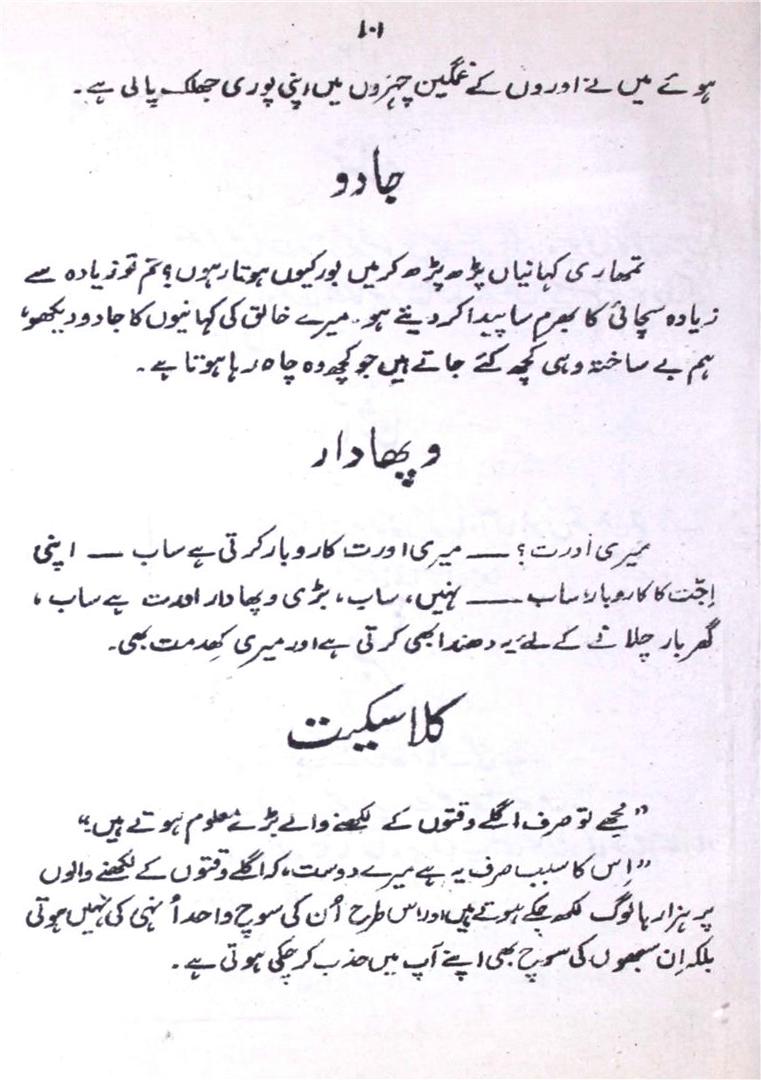 ۱۰۱
ہوئے میں نے اوروں کے غمگین چہروں میں اپنی پوری جھلک پالی ہے۔
جادو
تمھاری کہانیاں پڑھ پڑھ کر میں بور کیوں ہوتا رہوں؟ تم تو زیادہ سے
زیادہ سچائی کا بھرم سا پیدا کر دیتے ہو۔ میرے خالق کی کہانیوں کا جادو دیکھو،
ہم بے ساختہ وہی کچھ کئے جاتے ہیں جو کچھ وہ چاہ رہا ہوتا ہے۔
وپھادار
میری اَورت؟ — میری اورت کاروبار کرتی ہے ساب — اپنی
اِجّت کا کاروبار؛ ساب — نہیں، ساب، بڑی وپھادار اورت ہے ساب،
گھر بار چلانے کے لئے یہ دھندا بھی کرتی ہے اور میری کھِدمت بھی۔
کلاسکیت
”مُجھے تو صرف اگلے وقتوں کے لِکھنے والے بڑے معلوم ہوتے ہیں۔“
”اِس کا سبب صرف یہ ہے میرے دوست، کہ اگلے وقتوں کے لکھنے والوں
پر ہزار ہا لوگ لکھ چکے ہوتے ہیں اور اس طرح اُن کی سوچ واحد اُنہی کی نہیں ہوتی
بلکہ اِن سبھوں کی سوچ بھی اپنے آپ میں جذب کر چکی ہوتی ہے۔